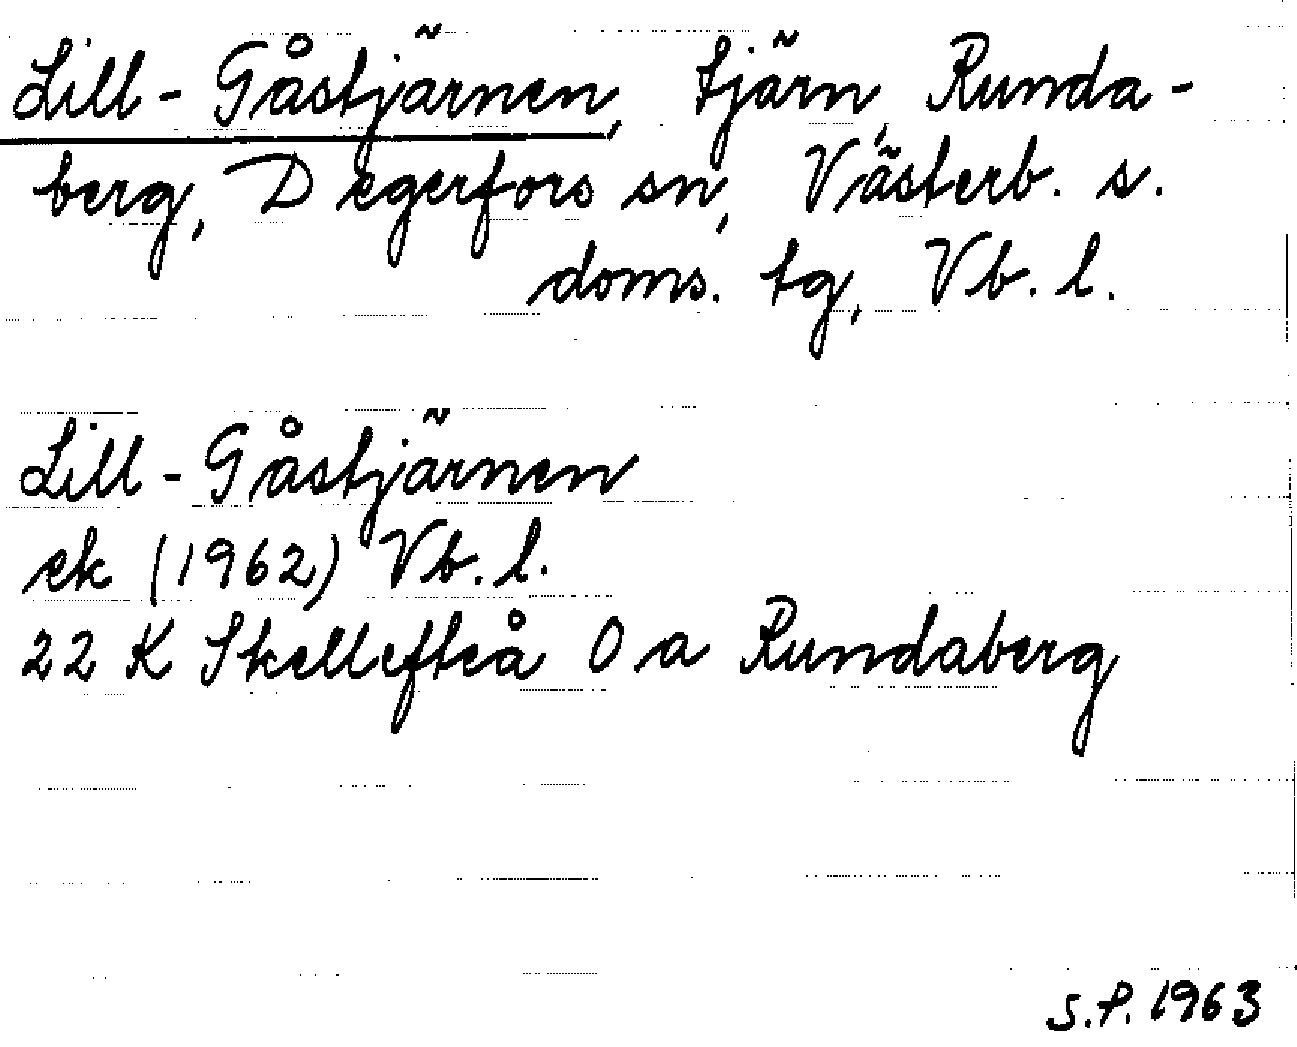 Lill-Gåstjärnen, tjärn, Runda-
berg, Degerfors sn, Västerb. s.
doms. tg, Vb. l.
Lill-Gåstjärnen
ek (1962) Vb. l.
22 K Skellefteå 0 a Rundaberg
S.P. 1963